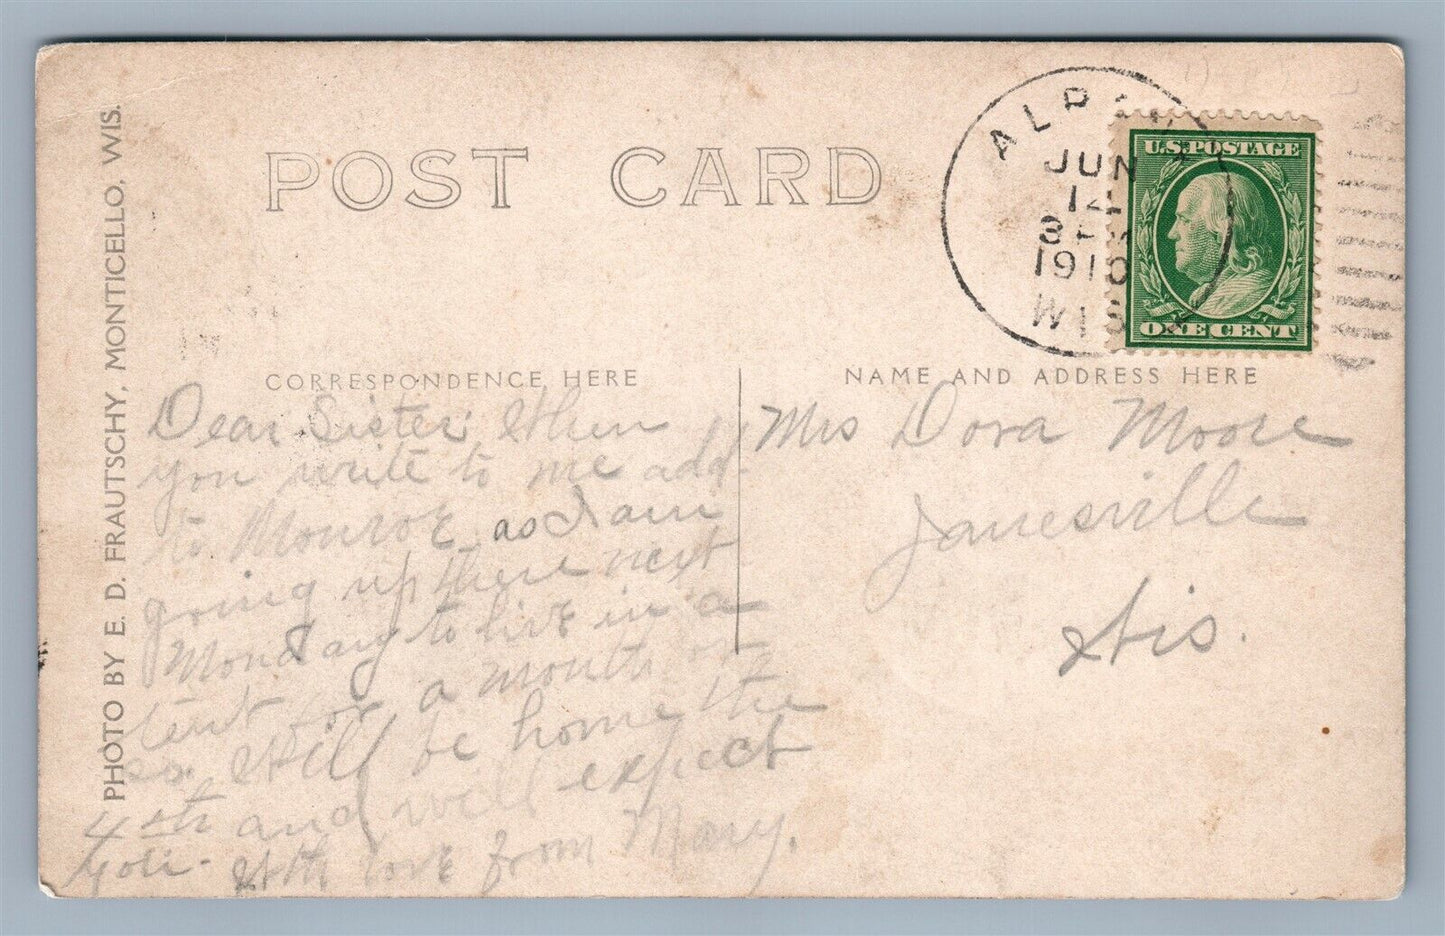 POST CARD
ALP
JUN
14
3 PM
1910
WIS
U.S. POSTAGE
ONE CENT
PHOTO BY E. D. FRAUTSCHY, MONTICELLO, WIS.
CORRESPONDENCE HERE
NAME AND ADDRESS HERE
Dear Sister: When
you write to me add-
to Monroe as I am
going up there next
Monday to live in a
tent for a month or
so. Will be home the
4th and will expect
you. With love from Mary.
Mrs Dora Moore
Janesville
Wis.